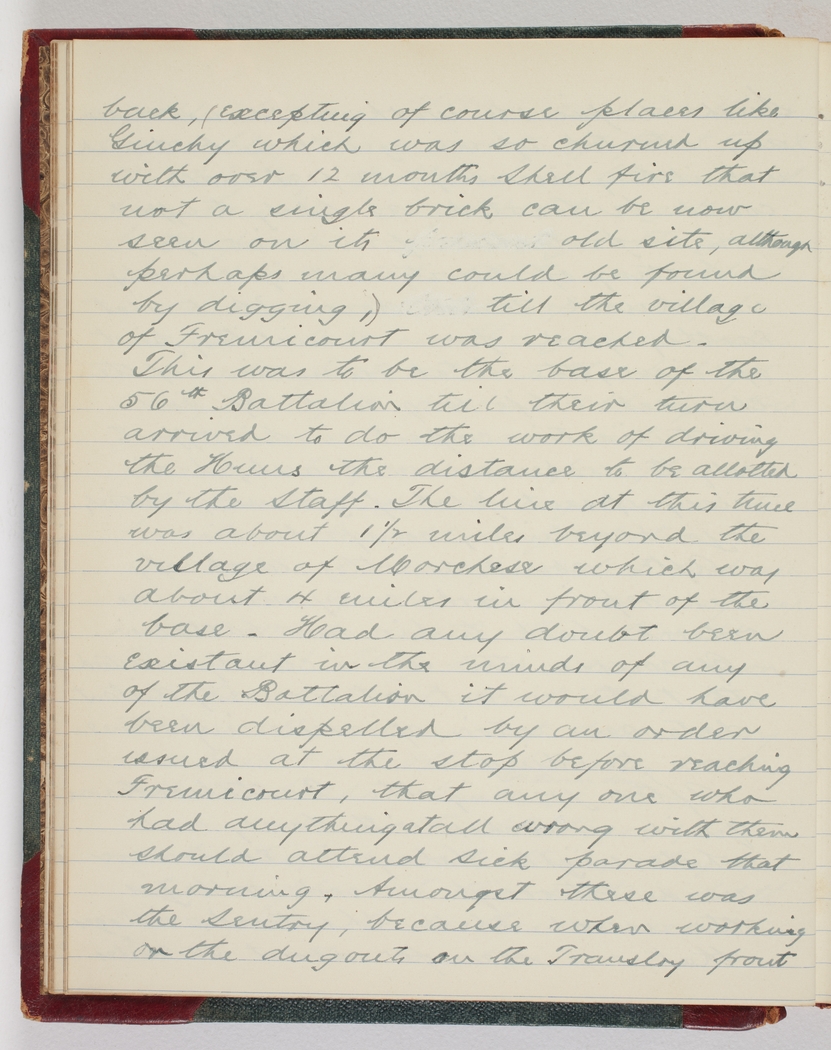 back, (excepting of course places like
Ginchy which was so churned up
with over 12 months shell fire that
not a single brick can be now
seen on its old site, although
perhaps many could be found
by digging,) till the village
of Fremicourt was reached.
This was to be the base of the
56th Battalion till their turn
arrived to do the work of driving
the Huns the distance to be allotted
by the Staff. The line at this time
was about 1½ miles beyond the
village of Morchese which was
about 4 miles in front of the
base. Had any doubt been
existant in the minds of any
of the Battalion it would have
been dispelled by an order
issued at the stop before reaching
Fremicourt, that any one who
had anythingatall wrong with them
should attend sick parade that
morning. Amongst these was
the Sentry, because when working
on the dugouts on the Transloy front